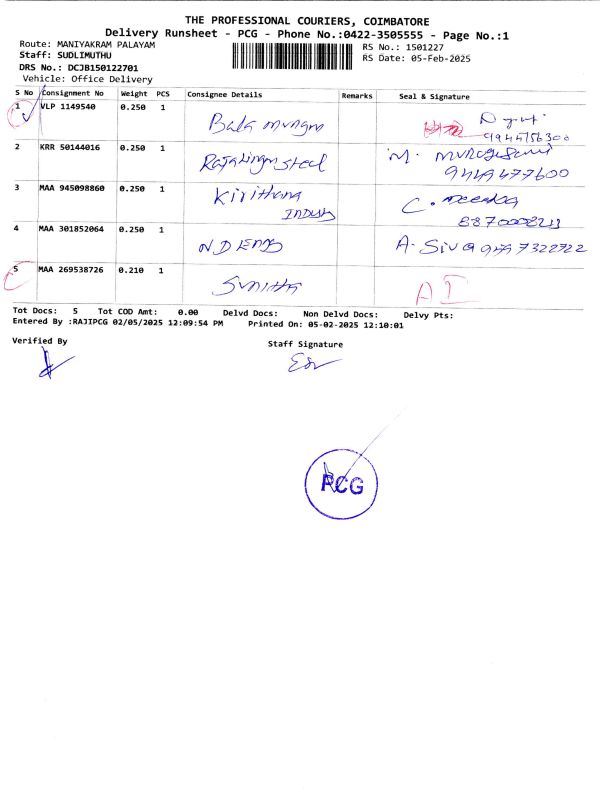 THE PROFESSIONAL COURIERS, COIMBATORE
Delivery Runsheet - PCG - Phone No.:0422-3505555 - Page No.:1
Route: MANIYAKRAM PALAYAM RS No.: 1501227
Staff: SUDLIMUTHU RS Date: 05-Feb-2025
DRS No.: DCJB150122701
Vehicle: Office Delivery
S No Consignment No Weight PCS Consignee Details Remarks Seal & Signature
1 VLP 1149540 0.250 1 Bala
2 KRR 50144016 0.250 1 Rajalingm steel M. Murugesami
9449477600
3 MAA 945098860 0.250 1 Kirithana
INDUS C.
4 MAA 301852064 0.250 1 N D ENDS A. Siva 9597322722
5 MAA 269538726 0.210 1 Sunitha
Tot Docs: 5 Tot COD Amt: 0.00 Delvd Docs: Non Delvd Docs: Delvy Pts:
Entered By :RAJIPCG 02/05/2025 12:09:54 PM Printed On: 05-02-2025 12:10:01
Verified By Staff Signature
PCG